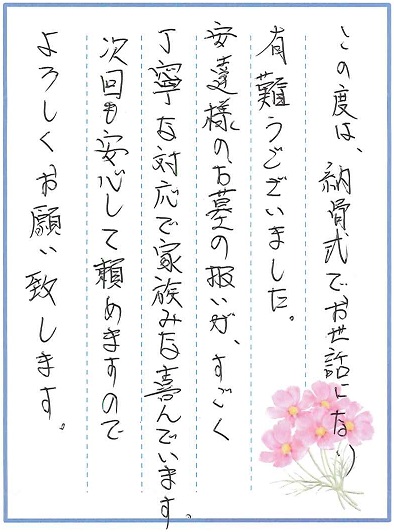 この度は、納骨式でお世話になり
有難うございました。
安達様のお墓の扱いが、すごく
丁寧な対応で家族みな喜んでいます。
次回も安心して頼めますので
よろしくお願い致します。